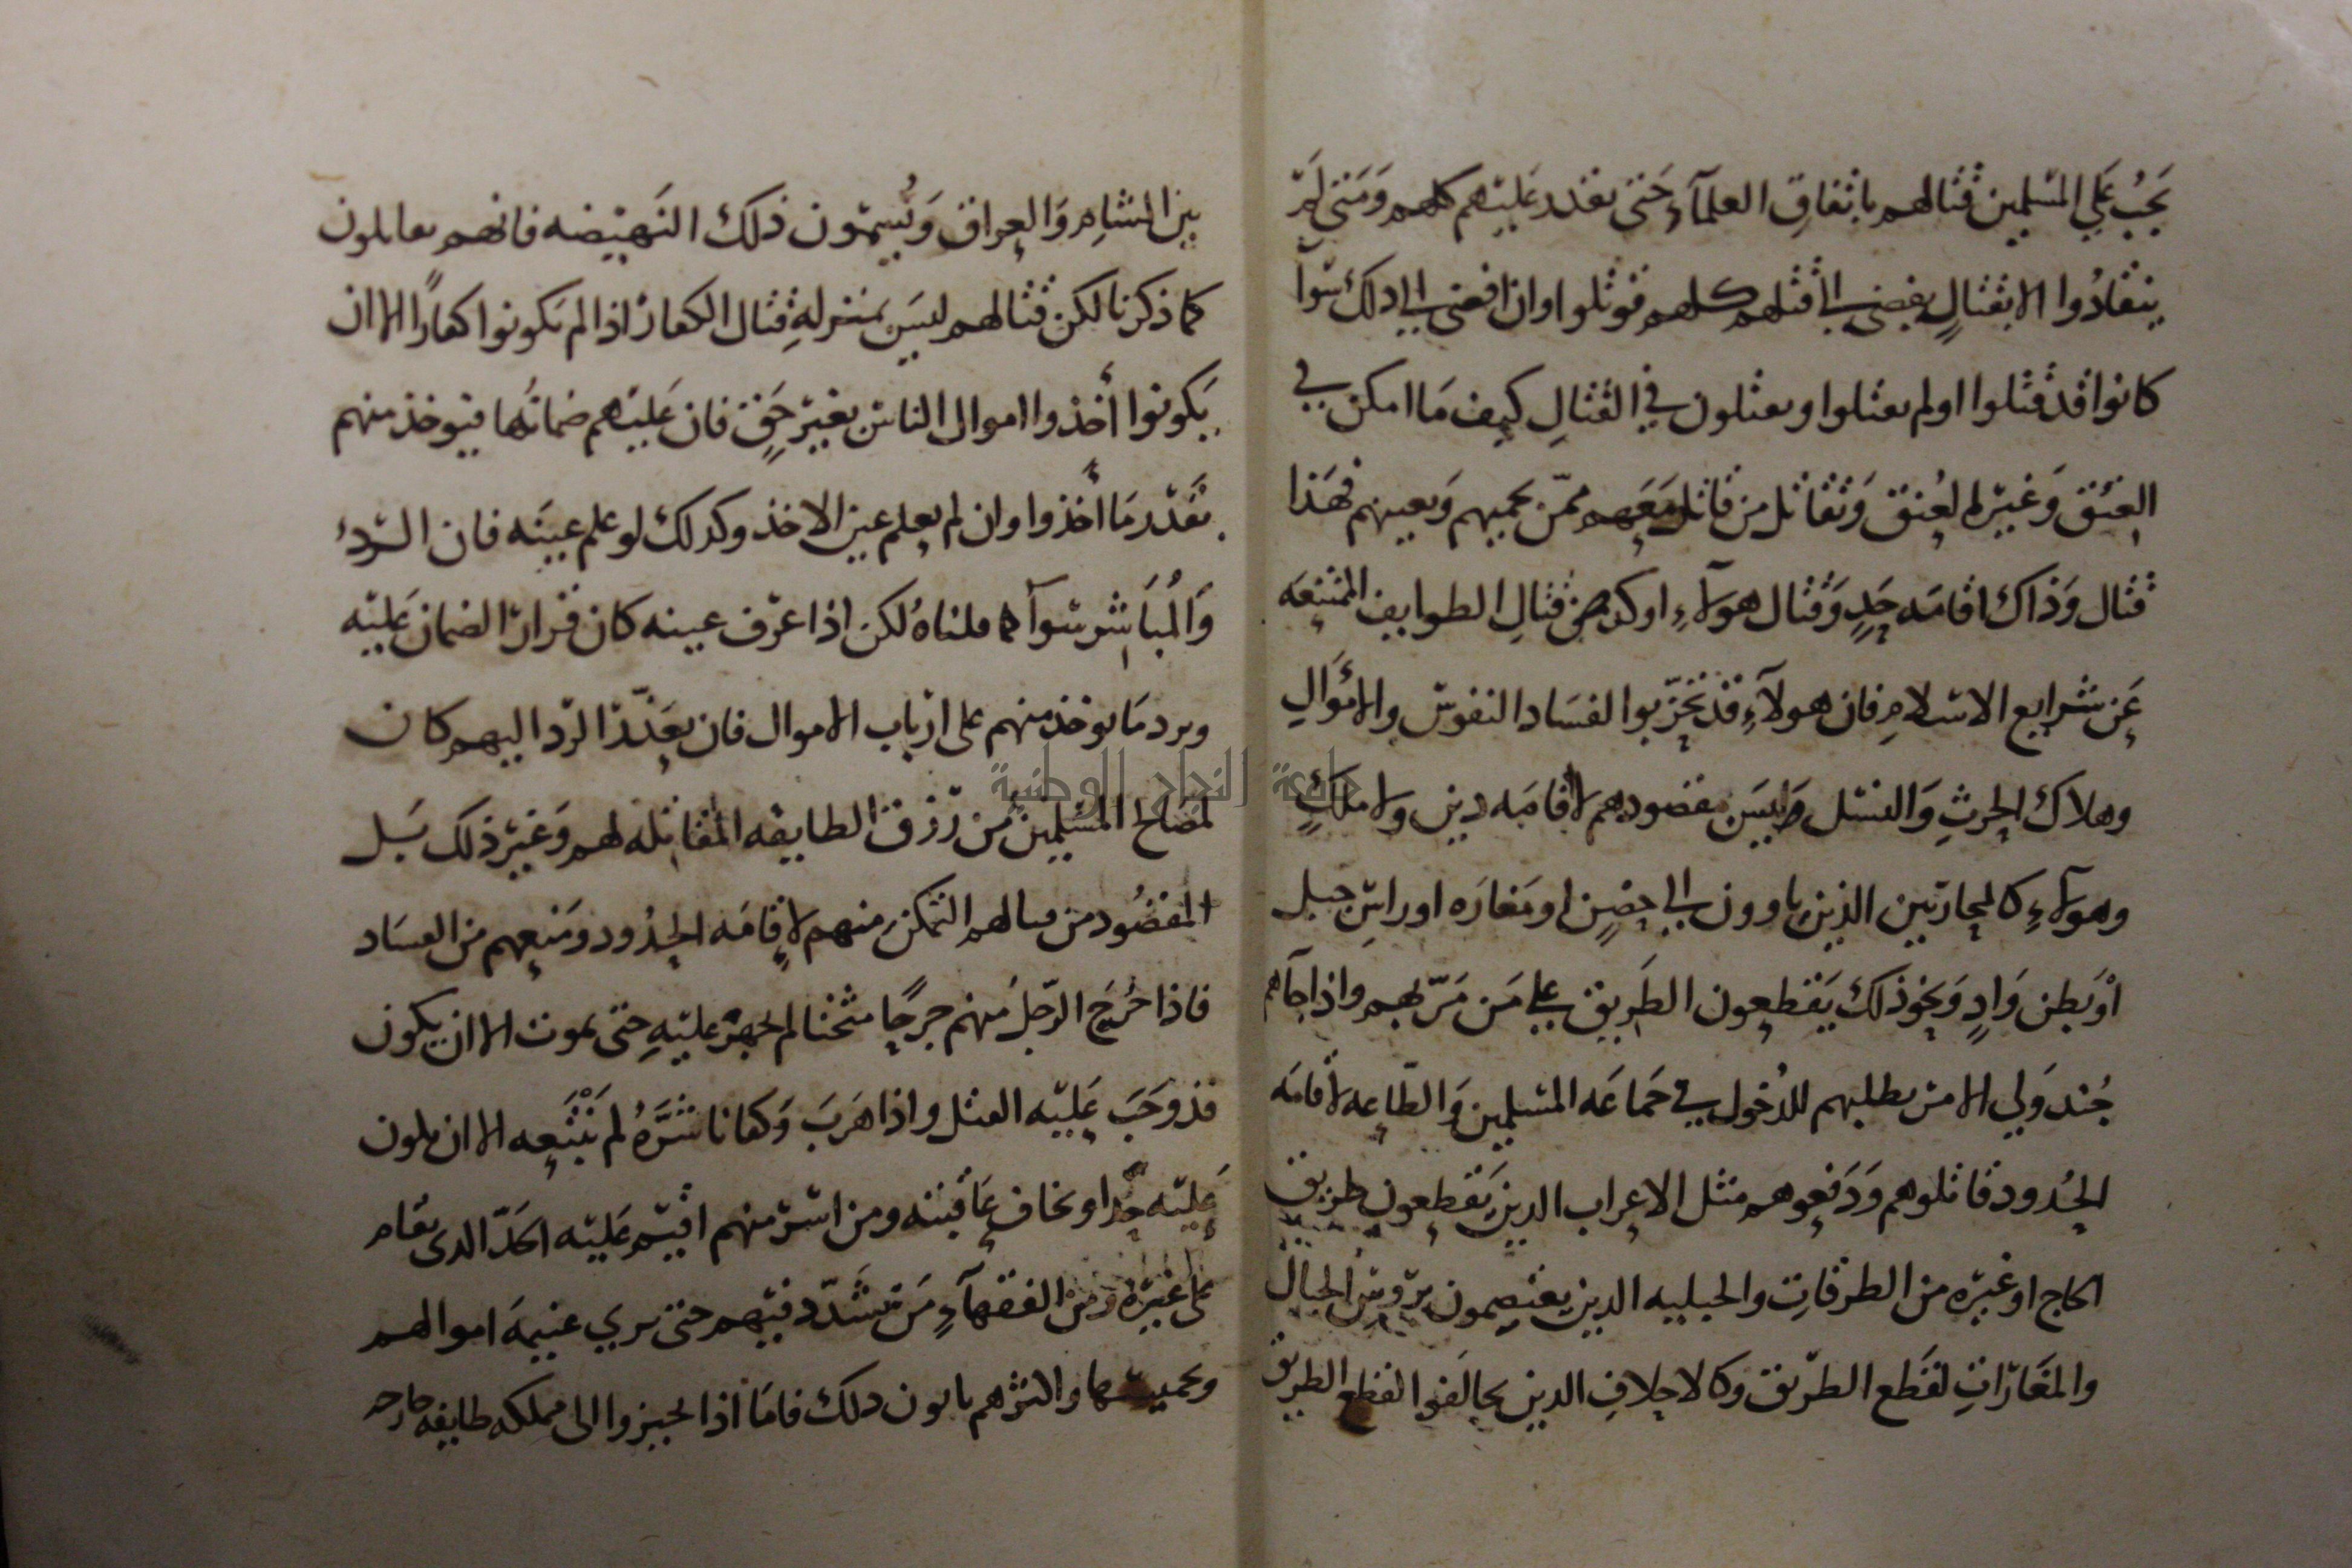 يجب على المسلمين قتالهم باتفاق العلماء حتى يقدر عليهم كلهم ومتى لم
ينقادوا الا بقتال يفضي الى قتلهم كلهم قوتلوا وان افضى الى ذلك سوا
كانوا قد قتلوا او لم يقتلوا ويقتلون في القتال كيف ما امكن في
العنق وغير العنق ونقاتل من قاتل معهم ممن يحميهم ويعينهم فهذا
قتال وذاك اقامه حد وقتال هولاء اوكد من قتال الطوايف الممتنعه
عن شرايع الاسلام فان هولاء قد تحزبوا لفساد النفوس والاموال
وهلاك الحرث والنسل وليس مقصودهم لاقامه دين ولا ملك
وهولاء كالمحاربين الذين ياوون الى حصن او مغاره او راس جبل
او بطن واد ونحو ذلك يقطعون الطريق على من مر بهم واذا جاهم
جند ولي الامر يطلبهم للدخول في جماعه المسلمين والطاعه لاقامه
الحدود قاتلوهم ودفعوهم مثل الاعراب الذين يقطعون طريق
الحاج او غيره من الطرقات والجبليه الذين يعتصمون بروس الجبال
والمغارات لقطع الطريق وكالاحلاف الذين تحالفوا لقطع الطريق
بين الشام والعراق ويسمون ذلك النهيضه فانهم يقاتلون
كما ذكرنا لكن قتالهم ليس بمنزله قتال الكفار اذا لم يكونوا كفارا الا ان
يكونوا أخذوا اموال الناس بغير حق فان عليهم ضمانها فيوخذ منهم
بقدر ما أخذوا وان لم يعلم عين الاخذ وكذلك لو علم عينه فان الردء
والمباشر سوآ كما قلناه لكن اذا عرف عينه كان قرار الضمان عليه
ويرد ما يوخذ منهم على ارباب الاموال فان تعذر الرد اليهم كان
لمصالح المسلمين من رزق الطايفه المقاتله لهم وغير ذلك بل
المقصود من قتالهم التمكن منهم لاقامه الحدود ومنعهم من الفساد
فاذا جرح الرجل منهم جرحا مثخنا لم يجهز عليه حتى يموت الا ان يكون
قد وجب عليه القتل واذا هرب وكفانا شره لم نتبعه الا ان يكون
عليه حد او نخاف عاقبته ومن اسر منهم اقيم عليه الحد الذي يقام
على غيره ومن الفقهآء من يشدد فيهم حتى يرى غنيمه اموالهم
وتخميسها واكثرهم يابون ذلك فاما اذا تحيزوا الى مملكه طايفه خارجه
جامعة النجاح الوطنية